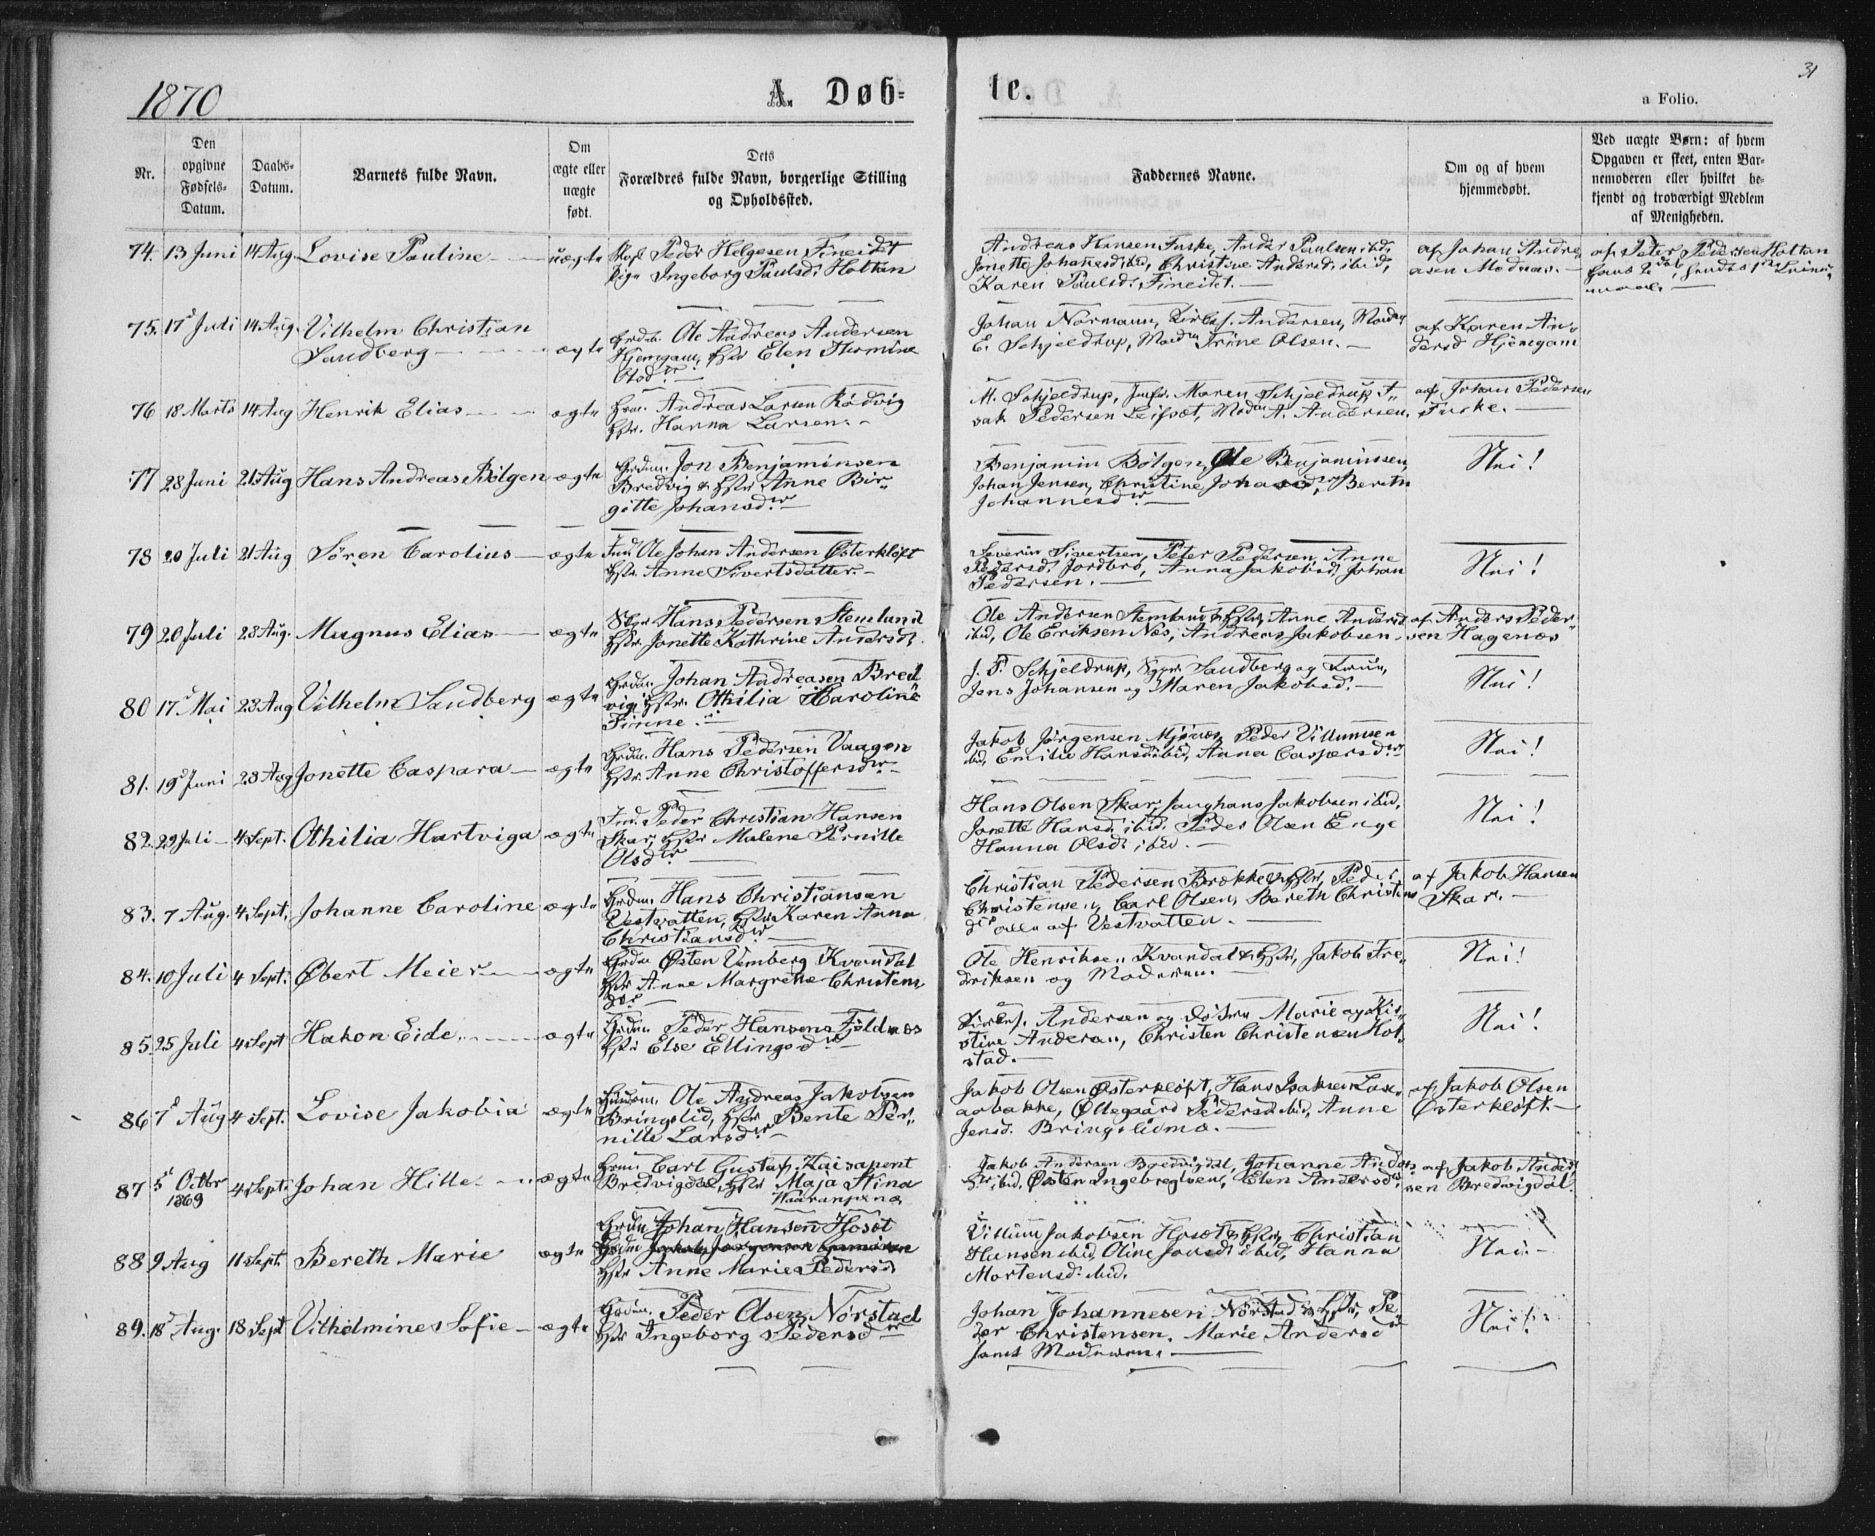 1870
A. Døb=
te.
31
a Folio.
Nr.
Den opgivne Fødsels-Datum.
Daabs-Datum.
Barnets fulde Navn.
Om ægte eller uægte født.
Dets Forældres fulde Navn, borgerlige Stilling og Opholdssted.
Faddernes Navne.
Om og af hvem hjemmedøbt.
Ved uægte Børn: af hvem Opgaven er skeet, enten Barnemoderen eller hvilket bekjendt og troværdigt Medlem af Menigheden.
74. 13 Juni 14 Aug Lovise Pauline uægte
Peder Helgesen Fineidet
Pige Ingeborg Paulsd: Holtan
Andreas Hansen Fuske, Anders Paulsen ibd,
Jonette Johannesd: ibd, Christine Andersd: ibid,
Karen Paulsd: Fineidet.
af Johan Andre
asen Modnæs.
af Peter Pedersen Holtan
75. 17 Juli 14 Aug. Vilhelm Christian
Sandberg ægte
Ole Andreas Andersen
Hjemgam, Elen Hermine
Olsd:
Johan Normann, Andersen, Madam
E. Schjeldrup, Madm Trine Olsen.
af Karen An-
dersd Hjemgam
76 18 Marts 14 Aug Henrik Elias ægte
Andreas Larsen Rødvig
Hst. Hanna Larsen.
M. Schjeldrup, Jmfr. Maren Schjeldrup, I,,
sak Pedersen Leifset, Mad A. Andersen.
af Johan Pedersen
Fuske.
77 28 Juni 21 Aug Hans Andreas Bölgen ægte
Jon Benjaminsen
Bredvig & Hst. Anne Bir,,
gitte Johansd:
Benjamin Bölgen, Ole Benjaminsen,
Johan Jensen, Christine Johansd, Bereth
Johannesd:
Nei!
78 20 Juli 21 Aug Sören Carolius ægte
Ind. Ole Johan Andersen Østerkløft
Hst. Anne Sivertsdatter.
Severin Sivertsen, Peter Pedersen, Anne
Pedersd: Jordbro, Anna Jakobsd, Johan
Pedersen.
Nei!
79 20 Juli 28 Aug. Magnus Elias ægte
Hans Pedersen Stemlund
Hst. Jonette Kathrine Andersd:
Ole Andersen Stemland & Hst, Anne Andersd
ibid, Ole Eriksen Næs, Andreas Jakobsen.
af Anders Peder-
sen Hagenæs
80 17 Mai 28 Aug Vilhelm Sandberg ægte
Johan Andreasen Bred,,
vig, Hst. Othilia Caroline
Finne.
J. P. Schjeldrup, Sandberg og Frue,
Jens Johansen og Maren Jakobsd.
Nei!
81. 19 Juni 28 Aug Jonette Caspara ægte
Hans Pedersen Vaagen
Hst. Anne Christoffersd:
Jakob Jørgensen Mjönes, Peder Villumsen
ibd, Emilie Hansd: ibid, Anna Caspersd:
Nei!
82. 29 Juli 4 Sept. Othilia Hartviga ægte
Ind. Peder Christian Hansen
Skar, Hst. Malene Pernille
Olsd:
Hans Olsen Skar, Jakobsen ibid,
Jonette Hansd: ibid, Peder Olsen Enge
Hanna Olsd: ibid.
Nei!
83. 7 Aug. 4 Sept. Johanne Caroline ægte
Hans Christiansen
Vestvatten, Hst. Karen Anna
Christiansd:
Christian Pedersen Brække & Hst, Peder
Christensen, Carl Olsen, Bereth Christens
dr alle af Vestvatten.
af Jakob Hansen
Skar.
84. 10 Juli 4 Sept. Øbert Meier ægte
Østen Vemberg Kvandal
Hst. Anne Margrethe Christens
dr
Ole Henriksen Kvandal & Hst, Jakob Fre-
driksen og Moderen.
Nei!
85. 25 Juli 4 Sept Hakon Eide ægte
Peder Hansen Fjeldnæs
Hst. Else Ellingsd:
Andersen og Marie og Kir,,
stine Andersen, Christen Christensen Hol-
stad.
Nei!
86 7 Aug 4 Sept. Lovise Jakobia ægte
Ole Andreas Jakobsen
Bringslid, Hst. Bente Per,,
nille Larsd:
Jakob Olsen Østerkløft, Hans Isaksen Lax-
aabakke, Ollegaard Pedersd: ibid, Anne
Jensd: Bringslidmo.
af Jakob Olsen
Østerkløft.
87 5 Octbr 1869 4 Sept: Johan Hille ægte
Carl Gustaf Kaisapent
Bredvigdal, Hst. Maja Stina
Jakob Andersen Bredvigdal, Johanne Anders
dr ibid, Østen Ingebregtsen, Elen Andersd:
af Jakob Anders,
sen Bredvigdal.
88 9 Aug 11 Sept. Bereth Marie ægte
Johan Hansen Hoset
Hst. Anne Marie Pedersd:
Villum Jakobsen Hoset & Hst, Christian
Hansen ibid, Oline Jonsd: ibid, Hanna
Mortensd: ibid.
Nei.
89. 18 Aug. 18 Sept Vilhelmine Sofie ægte
Peder Olsen Nörstad
Hst. Ingeborg Pedersd:
Johan Johannesen Nörstad & Hst, Pe-
der Christensen, Marie Andersd
samt Moderen.
Nei!